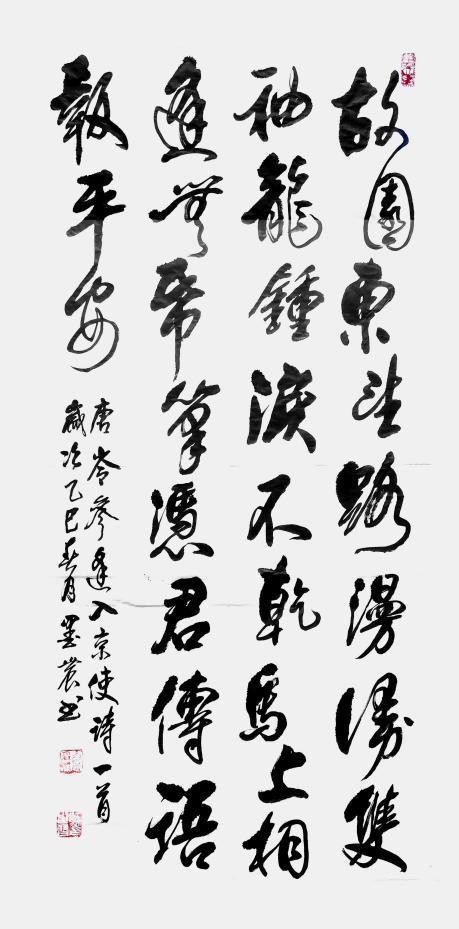 故園東望路漫漫雙
袖龍鍾淚不乾馬上相
逢無帋筆憑君傳語
報平安
唐岑參逢入京使詩一首
歲次乙巳春月墨農書